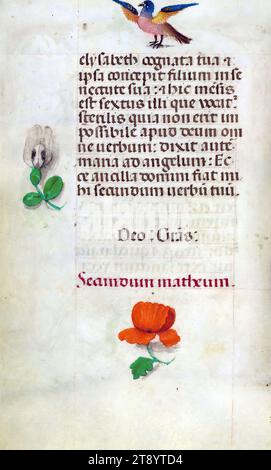 elysabeth cognata tua &
ipsa concepit filium in se
nectute sua: & hic mēsis
est sextus illi que vocat᷑
sterilis quia non erit im
possibile apud deum om
ne verbum: dixit autē
maria ad angelum: Ec
ce ancilla domini fiat mi
hi secundum verbū tuū.
Deo: Grās:
Secundum matheum.
alamy
Image ID: 2T8YTD4
www.alamy.com